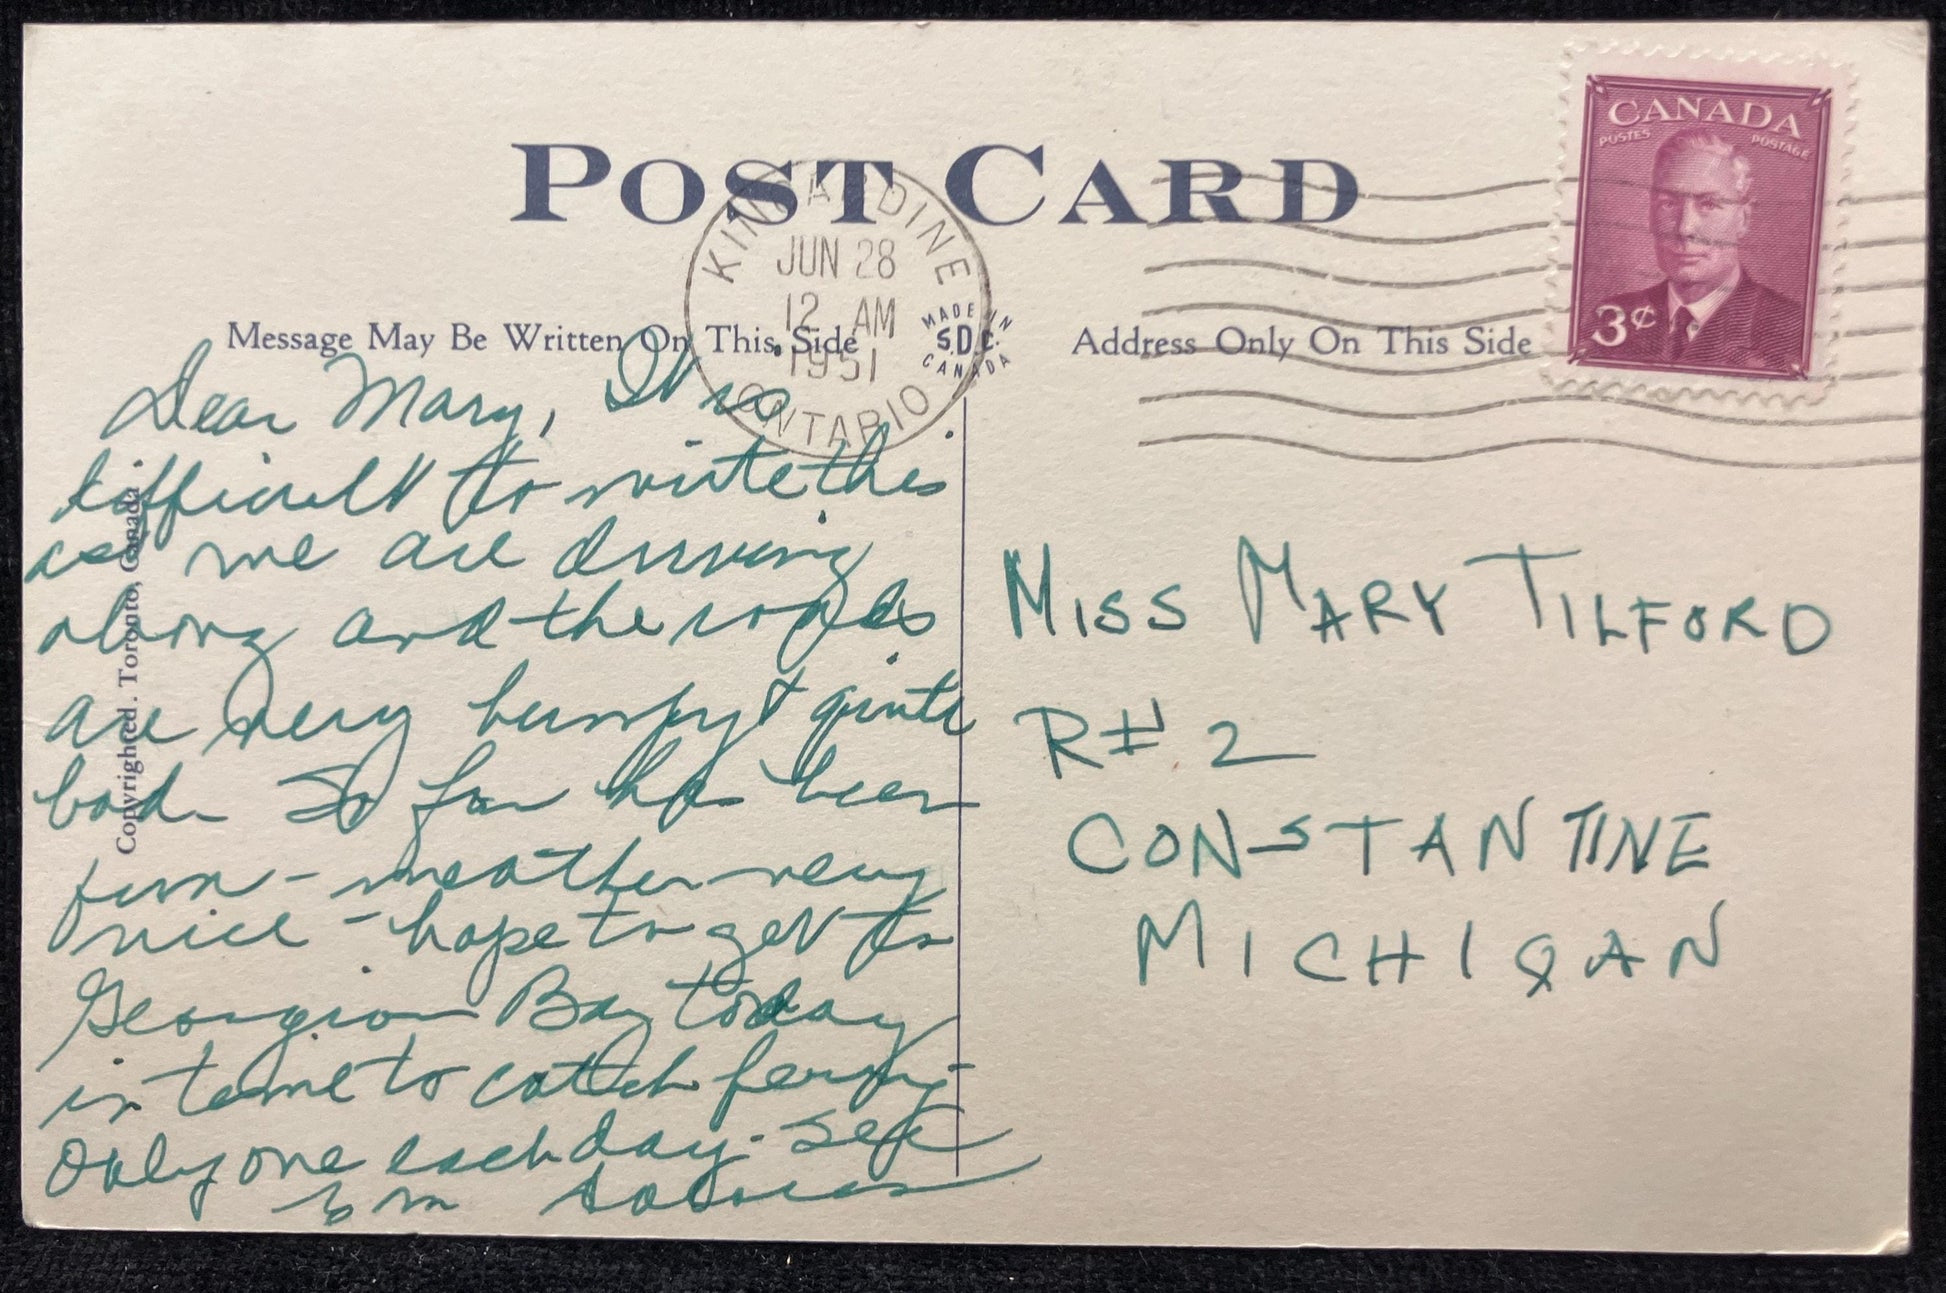 POST CARD
CANADA
POSTES POSTAGE
3¢
KINCARDINE
JUN 28
12 AM
1951
ONTARIO
Message May Be Written On This Side
MADE IN
S.D.C.
CANADA
Address Only On This Side
Copyrighted. Toronto, Canada
Dear Mary, It is
difficult to write this
as we are driving
along and the roads
are very bumpy & quite
bad. So far has been
fun - weather very
nice - hope to get to
Georgian Bay today
in time to catch ferry -
only one each day. See

MISS MARY TILFORD
R# 2
CONSTANTINE
MICHIGAN